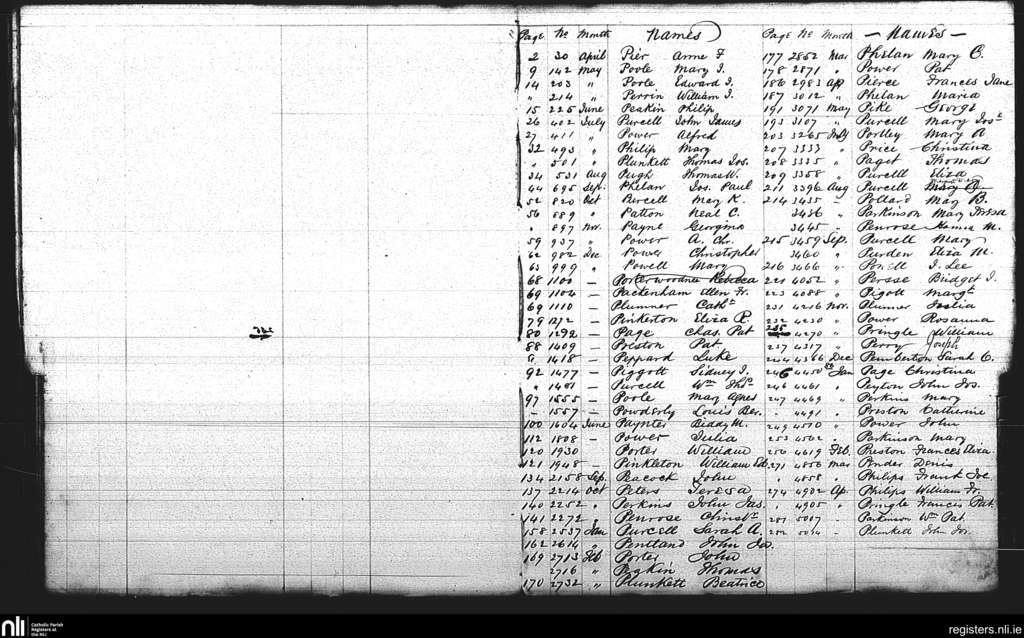 Page No Month Names
2 30 April Pier Anne F
9 142 May Poole Mary J.
14 203 " Poole Edward J.
" 214 " Perrin William J.
15 225 June Peakin Philip
26 402 July Purcell John James
27 411 " Power Alfred
32 493 " Philip Mary
" 501 " Plunkett Thomas Jos.
34 531 Aug Pugh Thomas W.
44 695 Sep. Phelan Jos. Paul
52 820 Oct Purcell Mary K.
56 889 " Patton Neal C.
" 897 Nov. Payne Georgina
59 937 " Power A. Chr.
62 982 Dec Power Christopher
63 999 " Powell Mary
68 1100 — Rebecca
69 1104 — Packenham Ellen Fr.
69 1110 — Plumner Cathe
79 1272 — Pinkerton Eliza R.
80 1292 — Page Chas. Pat
88 1409 — Preston Pat
" 1418 — Peppard Luke
92 1477 — Piggott Sidney J.
" 1481 — Purcell Wm Thos
97 1555 — Poole Mary Agnes
— 1557 — Powderly Louis Ber.
100 1604 June Paynter Biddy M.
112 1808 — Power Julia
120 1930 Porter William
121 1948 — Pinkleton William Ed.
134 2158 Sep. Peacock John
137 2214 Oct Peters Teresa
140 2252 " Perkins John Jas.
141 2272 " Penrose Christr
158 2537 Jan Purcell Sarah A.
162 2614 " Pentland John Jos.
169 2713 Feb Porter John
2716 " Peakin Thomas
170 2732 " Plunkett Beatrice
Page No Month — Names —
177 2852 Mar Phelan Mary C.
178 2871 " Power Pat
186 2983 Ap Pierce Frances Jane
187 3012 " Phelan Maria
191 3071 May Pike George
193 3107 " Purcell Mary Jose
203 3265 July Portley Mary A
207 3333 " Price Christina
208 3335 " Paget Thomas
209 3358 " Purcell Eliza
211 3396 Aug Purcell Mary A.
214 3435 — Pollard May B.
3436 " Parkinson Mary Teresa
3445 " Penrose M.
215 3459 Sep. Purcell Mary
3460 " Purden Eliza M.
216 3466 " Powell J. Lee
221 4052 " Persse Bridget J.
223 4088 " Pigott Margt
231 4216 Nov. Plumer Julia
232 4230 " Power Rosanna
235 4270 " Pringle William
237 4317 " Perry Joseph
244 4366 Dec Pemberton Sarah C.
246 4450 Jan Page Christina
246 4461 " Peyton John Jos.
247 4469 " Perkins Mary
" 4491 " Preston Catherine
249 4500 " Power John
253 4562 " Parkinson Mary
250 4619 Feb. Preston Frances Eliza.
271 4856 Mar Pender Denis
" 4858 " Philips Frank Joe.
274 4902 Ap. Philips William Fr.
" 4905 " Pringle Francis Pat.
281 5007 — Parkinson Wm Pat.
282 5034 — Plunkett John Jos.
nli Catholic Parish
Registers at
the NLI
registers.nli.ie